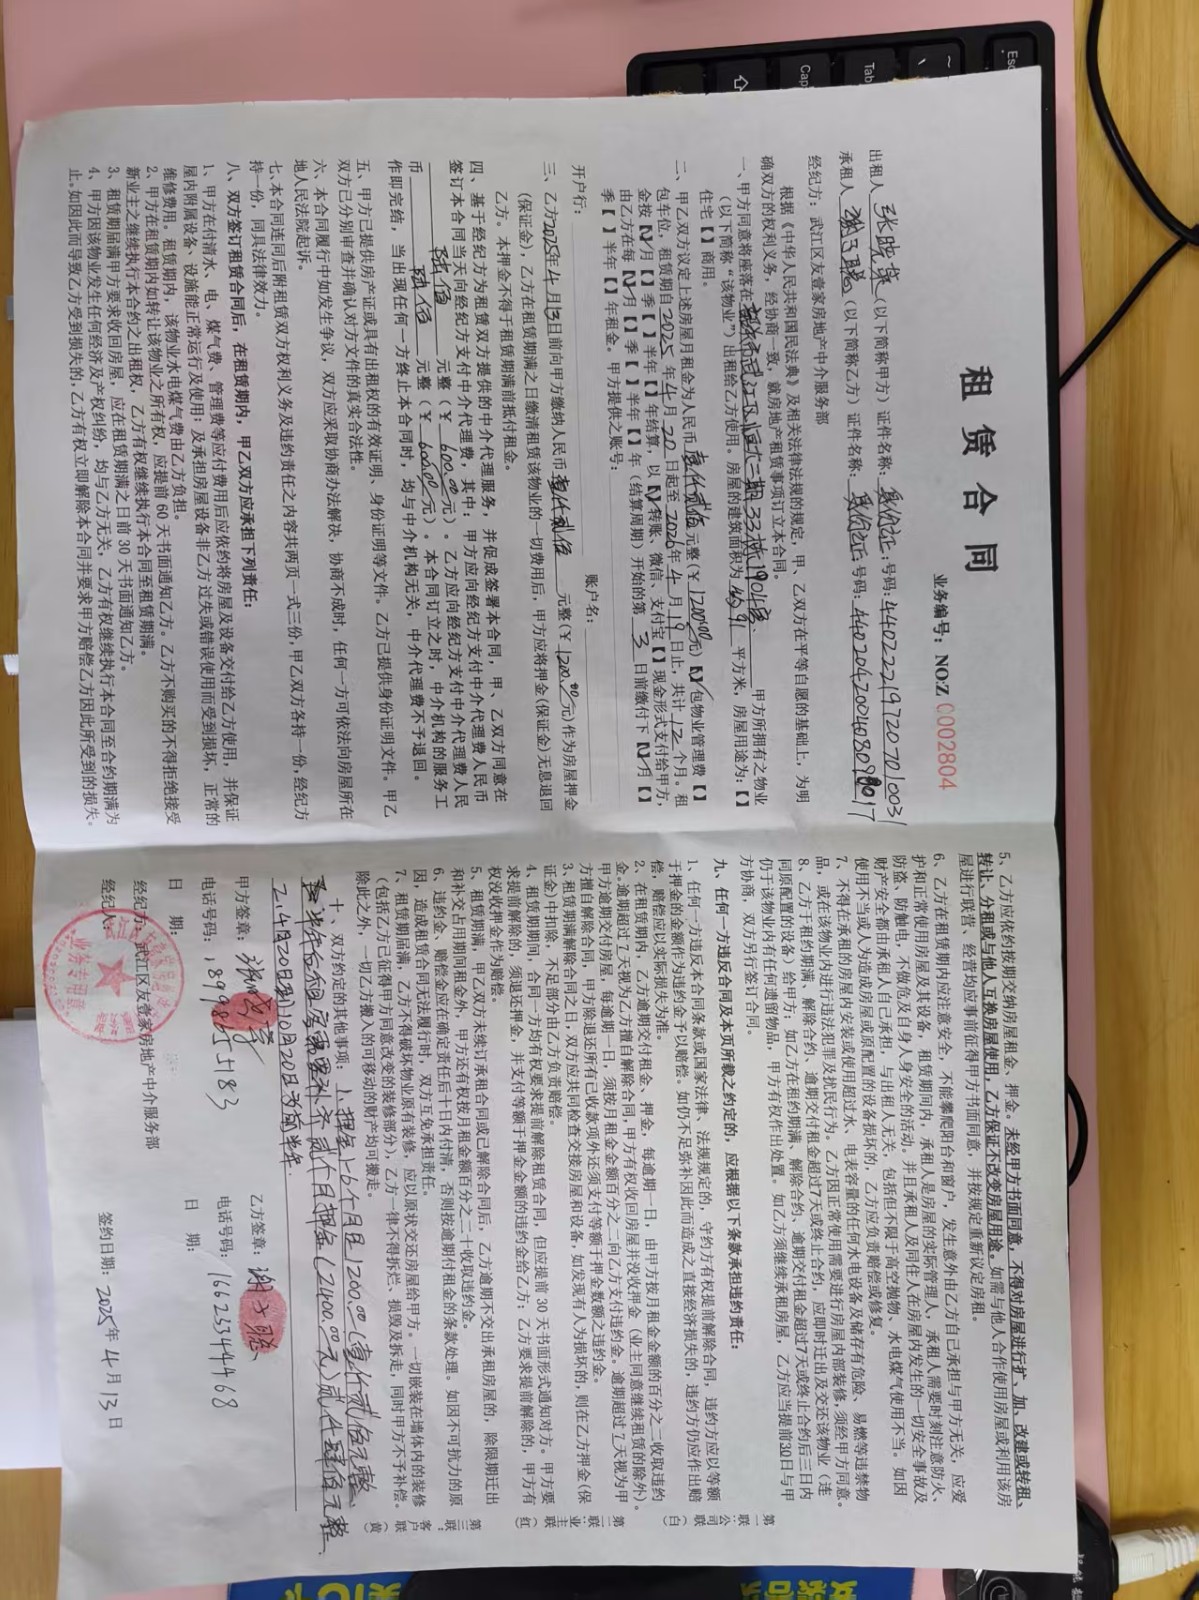 租赁合同
业务编号：NO:Z 0002804
出租人 张晓 （以下简称甲方）证件名称： 身份证 号码：440222197207010031
承租人 谢子聪 （以下简称乙方）证件名称： 身份证 号码：
经纪方：武江区友壹家房地产中介服务部
根据《中华人民共和国民法典》及相关法律法规的规定，甲、乙双方在平等自愿的基础上，为明
确双方的权利义务，经协商一致，就房地产租赁事项订立本合同。
一、甲方同意将座落在 韶关市武江区恒大二期33栋1904房、 甲方所拥有之物业
（以下简称“该物业”）出租给乙方使用。房屋的建筑面积为 91 平方米，房屋用途为：【】
住宅【】商用。
二、甲乙双方议定上述房屋月租金为人民币 壹仟贰佰 元整（￥1200.00元）【√】包物业管理费【】
包车位，租赁期自2025年4月20日起至2026年4月19日止，共计12个月。租
金按【√】月【】季【】半年【】年结算，以【√】转账、微信、支付宝【】现金形式支付给甲方，
由乙方在每【√】月【】季【】半年【】年（结算周期）开始的第 3 日前缴付下【√】月【】
季【】半年【】年租金。甲方提供之账号：
开户行： 账户名：
三、乙方2025年4月13日前向甲方缴纳人民币 壹仟贰佰 元整（￥1200.00元）作为房屋押金
（保证金），乙方在租赁期满之日缴清租赁该物业的一切费用后，甲方应将押金（保证金）无息退回
乙方。本押金不得于租赁期满前抵付租金。
四、基于经纪方为租赁双方提供的中介代理服务，并促成签署本合同，甲、乙双方同意在
签订本合同当天向经纪方支付中介代理费，其中：甲方应向经纪方支付中介代理费人民币
陆佰 元整（￥600.00元）。乙方应向经纪方支付中介代理费人民
币 陆佰 元整（￥600.00元）。本合同订立之时，中介机构的服务工
作即完结，当出现任何一方终止本合同时，均与中介机构无关，中介代理费不予退回。
五、甲方已提供房产证或具有出租权的有效证明、身份证明等文件。乙方已提供身份证明文件。甲乙
双方已分别审查并确认对方文件的真实合法性。
六、本合同履行中如发生争议，双方应采取协商办法解决，协商不成时，任何一方可依法向房屋所在
地人民法院起诉。
七、本合同连同后附租赁双方权利义务及违约责任之内容共两页一式三份，甲乙双方各持一份，经纪方
持一份，同具法律效力。
八、双方签订租赁合同后，在租赁期内，甲乙双方应承担下列责任：
1、甲方在付清水、电、煤气费、管理费等应付费用后应依约将房屋及设备交付给乙方使用，并保证
屋内附属设备、设施能正常运行及使用；及承担房屋设备非乙方过失或错误使用而受到损坏，正常的
维修费用。租赁期内，该物业水电煤气费由乙方负担。
2、甲方在租赁期内如转让该物业之所有权，应提前60天书面通知乙方。乙方不购买的不得拒绝接受
新业主之继续执行本合约之出租权，乙方有权继续执行本合同至租赁期满。
3、租赁期届满甲方要求收回房屋，应在租赁期满之日前30天书面通知乙方。
4、甲方因该物业发生任何经济及产权纠纷，均与乙方无关，乙方有权继续执行本合同至合约期满为
止。如因此而导致乙方受到损失的，乙方有权立即解除本合同并要求甲方赔偿乙方因此所受到的损失。
5、乙方应依约按期交纳房屋租金，押金。未经甲方书面同意，不得对房屋进行扩、加、改建或转租、
转让、分租或与他人互换房屋使用，乙方保证不改变房屋用途。如需与他人合作使用房屋或利用该房
屋进行联营、经营均应事前征得甲方书面同意，并按规定重新议定房租。
6、乙方在租赁期内应注意安全，不能攀爬阳台和窗户，发生意外由乙方自己承担与甲方无关，应爱
护和正常使用房屋及其设备，租赁期间内，承租人是房屋的实际管理人，承租人需要时刻注意防火、
防盗、防触电，不做危及自身人身安全的活动。并且承租人及同住人在房屋内发生的一切安全事故及
财产安全都由承租人自己承担，与出租人无关，包括但不限于高空抛物、水电煤气使用不当。如因
使用不当或人为造成房屋或原配置的设备损坏的，乙方应负责赔偿或修复。
7、不得在承租的房屋内安装或使用超过水、电表容量的任何水电设备及储存有危险、易燃等违禁物
品，或在该物业内进行违法犯罪及扰民行为。乙方因正常使用需要进行房屋内部装修，须经甲方同意。
8、乙方于租约期满、解除合约、逾期交付租金超过7天或终止合约，应即时迁出及交还该物业（连
同原配置的设备）给甲方；如乙方在租约期满、解除合约、逾期交付租金超过7天或终止合约后三日内
仍于该物业内有任何遗留物品，甲方有权作出处置。如乙方须继续承租房屋，乙方应当提前30日与甲
方协商，双方另行签订合同。
九、任何一方违反合同及本页所载之约定的，应根据以下条款承担违约责任：
1、任何一方违反本合同条款或国家法律、法规规定的，守约方有权提前解除合同，违约方应以等额
于押金的金额作为违约金予以赔偿。如仍不足弥补因此而造成之直接经济损失的，违约方仍应作出赔
偿，赔偿应以实际损失为准。
2、在租赁期内，乙方逾期交付租金，押金，每逾期一日，由甲方按月租金金额的百分之二收取违约
金。逾期超过7天视为乙方擅自解除合同，甲方有权收回房屋并没收押金（业主同意继续租赁的除外）。
甲方逾期交付房屋，每逾期一日，须按月租金金额百分之二向乙方支付违约金。逾期超过7天视为甲
方擅自解除合同，甲方除退还所有已收款项外还须支付等额于押金数额之违约金。
3、租赁期满解除合同之日，双方应共同检查交接房屋和设备，如发现有人为损坏的，则在乙方押金（保
证金）中扣除，不足部分由乙方负责赔偿。
4、租赁期期间，合同一方均有权要求提前解除租赁合同，但应提前30天书面形式通知对方。甲方要
求提前解除的，须退还押金，并支付等额于押金金额的违约金给乙方；乙方要求提前解除的，甲方有
权没收押金作为赔偿。
5、租赁期满，甲乙双方未续订承租合同或已解除合同后，乙方逾期不交出承租房屋的，除限期迁出
和补交占用期间租金外，甲方还有权按月租金额百分之二十收取违约金。
6、违约金、赔偿金应在确定责任后十日内付清，否则按逾期付租金的条款处理。如因不可抗力的原
因，造成租赁合同无法履行时，双方互免承担责任。
7、租赁期届满，乙方不得破坏物业原有装修，应以原状交还房屋给甲方。一切嵌装在墙体内的装修
（包括乙方已征得甲方同意改变的装修部分），乙方一律不得拆烂、损毁及拆走，同时甲方不予补偿。
除此之外，一切乙方搬入的可移动的财产均可搬走。
十、双方约定的其他事项：1、押金1—6个月日1200.00（壹仟贰佰元整，
若半年后租房需要补齐贰个月押金（2400.00元）贰仟肆佰元整
2、4月20日到10月20日为前半年.
甲方签章： 乙方签章： 谢子聪
电话号码： 18998655183 电话号码： 16623344468
日 期： 日 期：
经纪方：武江区友壹家房地产中介服务部
经纪人： 签约日期：2025年4月13日
业务专用章
第一联 公司（白） 第二联 业主（红） 第三联 客户联（黄）
Esc
Tab
Cap